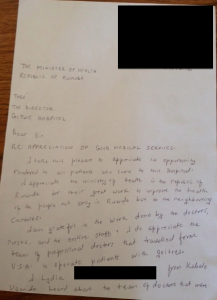 THE MINISTER OF HEALTH
REPUBLIC OF RWANDA
THE DIRECTOR
HOSPITAL
Dear Sir
RE: APPRECIATION OF GOOD MEDICAL SERVICE
I take this present to appreciate the opportunity
to all patients who come to this hospital.
I appreciate the ministry of health in the republic of
Rwanda for great work to improve the health
to the people not only in Rwanda but to the neighboring
Countries.
I am grateful to the work done by the doctors,
nurses, and the entire staff. I do appreciate the
team of professional doctors that travelled from
U.S.A to operate patients with goitres
I from Kabale
Uganda heard about the team of doctors that were